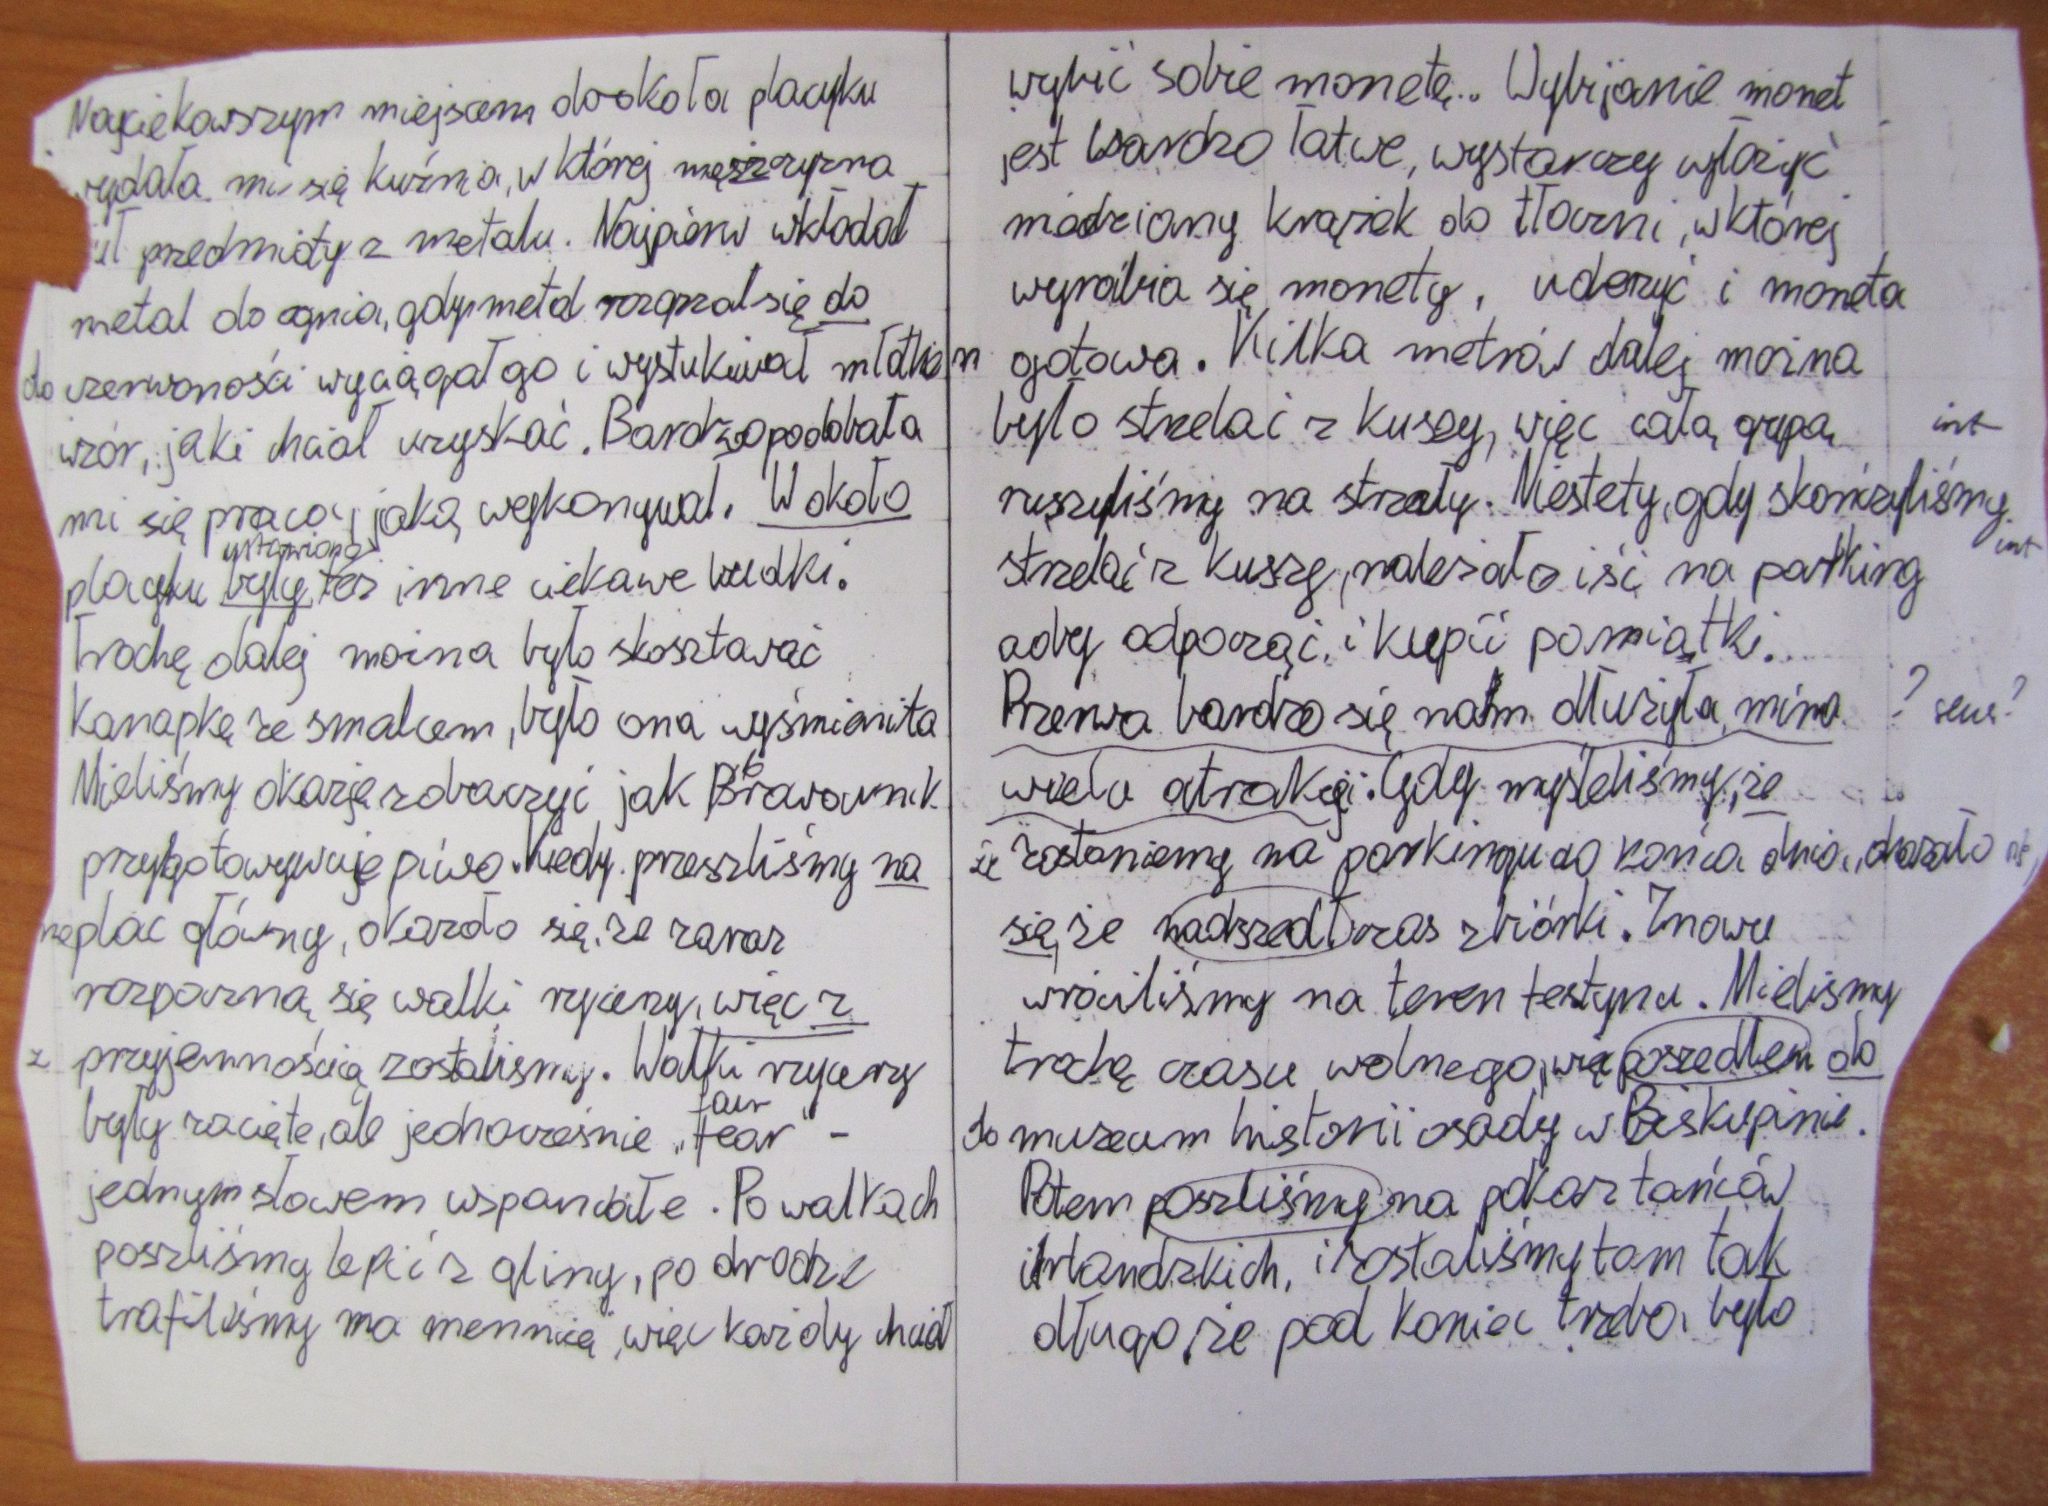 Najciekawszym miejscem dookoła placyku
wydała mi się kuźnia, w której męszczyzna
ił przedmioty z metalu. Najpierw wkładał
metal do ognia, gdy metal rozgrzał się do
do czerwoności wyciągał go i wystukiwał młotkiem
wzór, jaki chciał uzyskać. Bardzo podobała
mi się praca, jaką wykonywał. W około
ustawione
placyku były też inne ciekawe budki.
Trochę dalej można było skosztować
kanapkę ze smalcem, było ona wyśmienita
Mieliśmy okazję zobaczyć jak Browarnik
przygotowywuje piwo. Kiedy przeszliśmy na
na plac główny, okazało się, że zaraz
rozpoczną się walki rycerzy, więc z
z przyjemnością zostaliśmy. Walki rycerzy
fair
były zacięte, ale jednocześnie „fear" -
jednym słowem wspaniałe. Po walkach
poszliśmy lepić z gliny, po drodze
trafiliśmy na mennicę, więc każdy chciał
wybić sobie monetę.. Wybijanie monet
jest bardzo łatwe, wystarczy włożyć
miedziany krążek do tłoczni, w której
wyrabia się monety, uderzyć i moneta
gotowa. Kilka metrów dalej można
było strzelać z kuszy, więc całą grupą int
ruszyliśmy na strzały. Niestety, gdy skończyliśmy
strzelać z kuszy, należało iść na parking int
aby odpocząć, i kupić pamiątki.
Przerwa bardzo się nam dłużyła, mimo ? sens?
wielu atrakcji. Gdy myśleliśmy, że
że zostaniemy na parkingu do końca dnia, okazało
się, że nadszedł czas zbiórki. Znowu
wróciliśmy na teren festynu. Mieliśmy
trochę czasu wolnego, więc poszedłem do
do muzeum historii osady w Biskupinie.
Potem poszliśmy na pokaz tańców
irlandzkich, i zostaliśmy tam tak
długo, że pod koniec trzeba było